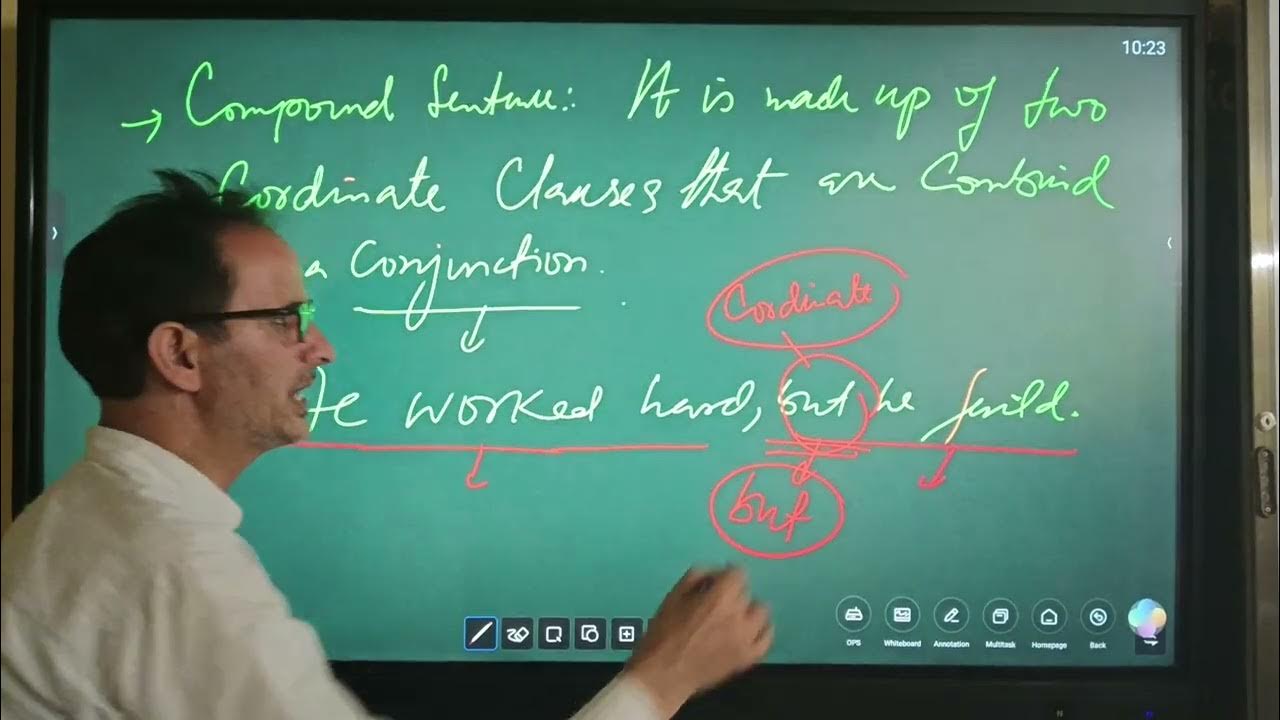 10:23
→ Compound Sentence: It is made up of two
Coordinate Clauses that are Combined
a Conjunction.
Coordinate
He worked hard, but he faild.
but
OPS Whiteboard Annotation Multitask Homepage Back